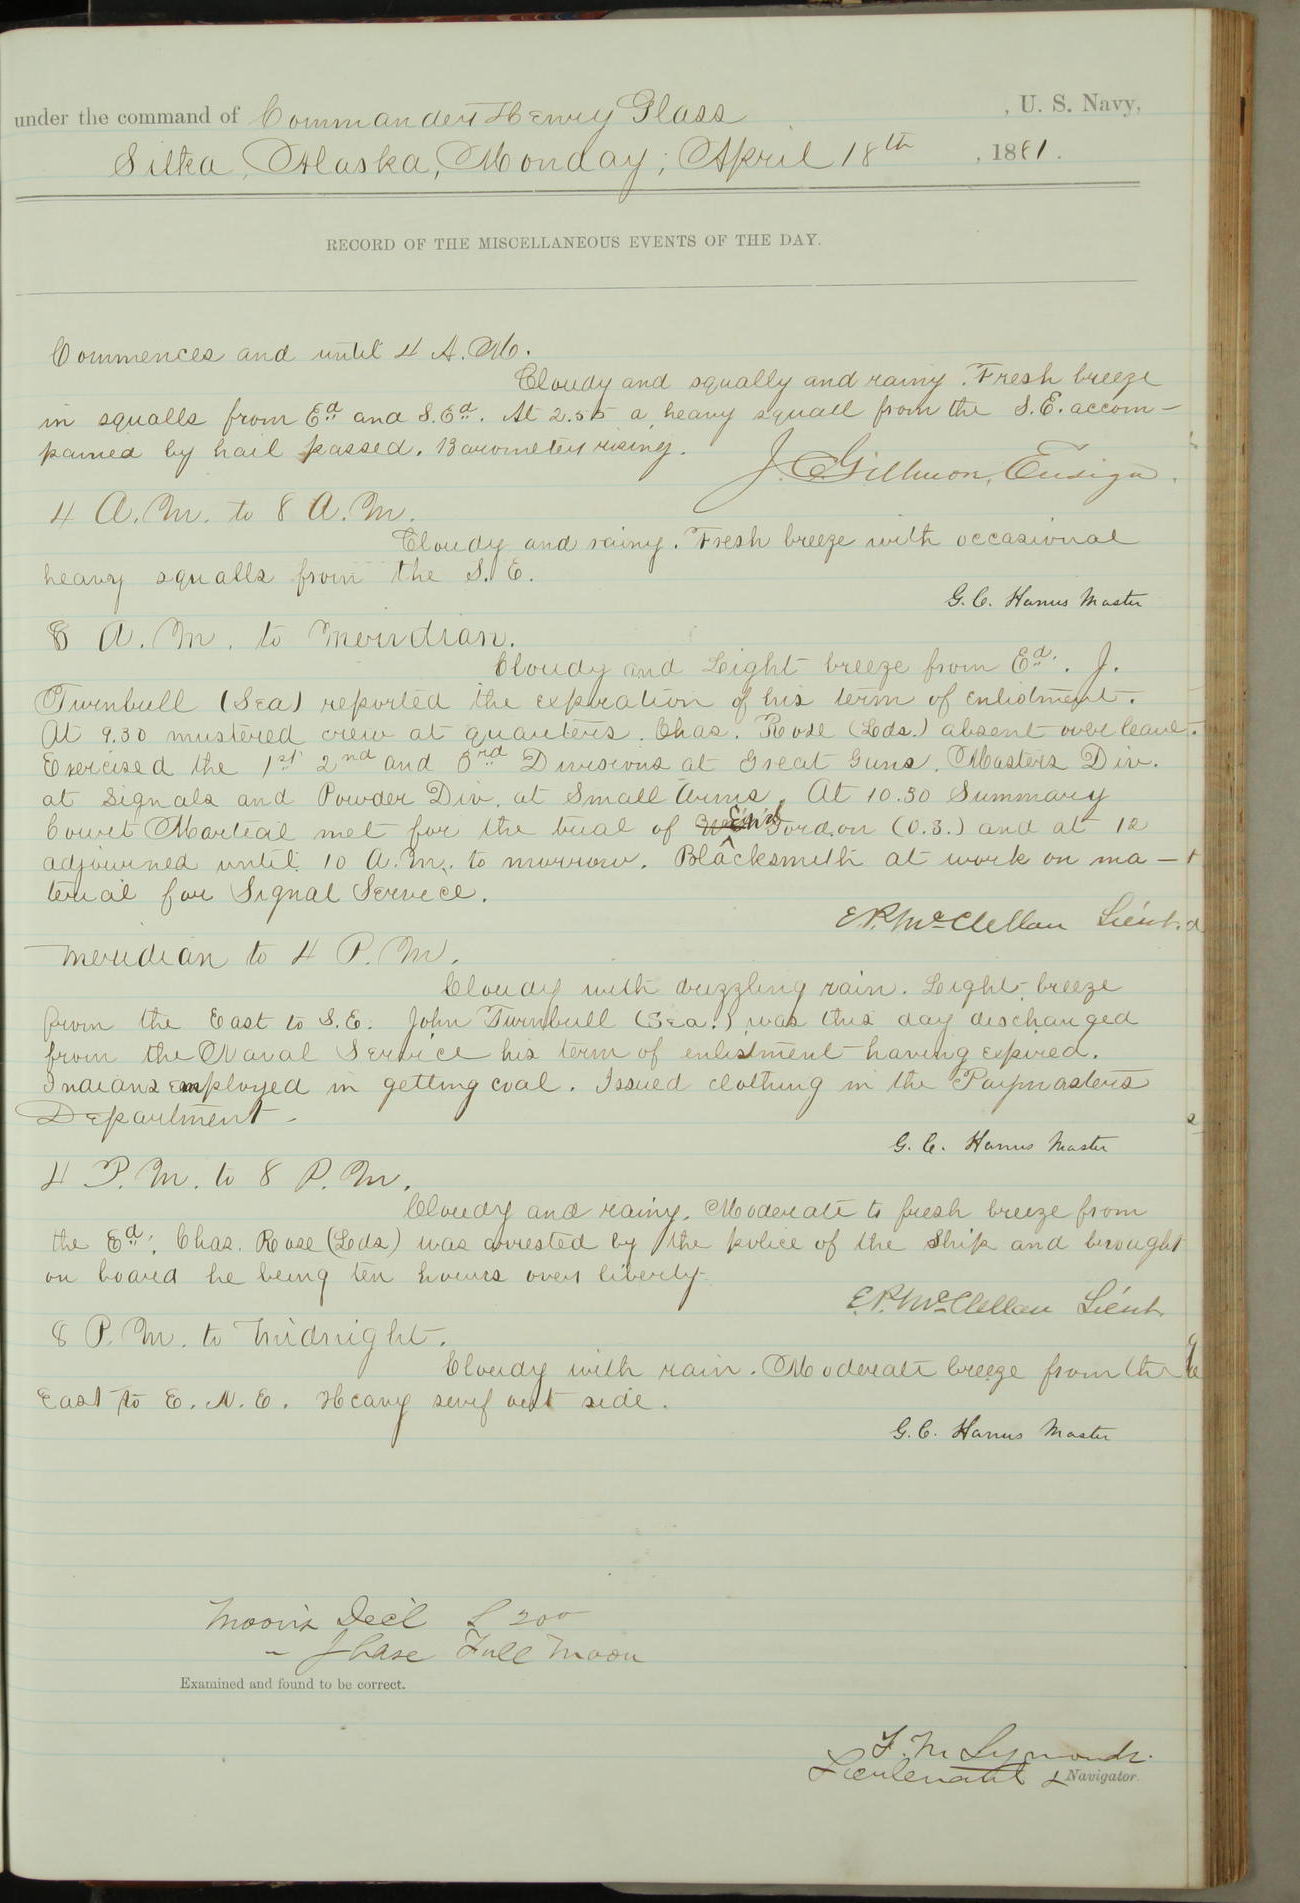 under the command of Commander Henry Glass, U. S. Navy,
Sitka, Alaska, Monday, April 18th, 1881.
RECORD OF THE MISCELLANEOUS EVENTS OF THE DAY.
Commences and until 4 A.M.
Cloudy and squally and rainy. Fresh breeze
in squalls from Ed and S.Ed. At 2.55 a heavy squall from the S.E. accom-
panied by hail passed. Barometer rising.
J. C. Gillmore, Ensign.
4 A.M. to 8 A.M.
Cloudy and rainy. Fresh breeze with occasional
heavy squalls from the S.E.
G. C. Hanus Master
8 A.M. to Meridian.
Cloudy and Light breeze from Ed. J.
Turnbull (Sea) reported the expiration of his term of enlistment.
At 9.30 mustered crew at quarters. Chas. Rose (Lds.) absent over leave.
Exercised the 1st 2nd and 3rd Divisions at Great Guns. Masters Div.
at Signals and Powder Div. at Small Arms. At 10.30 Summary
Court Martial met for the trial of Gordon (O.S.) and at 12
adjourned until 10 A.M. to morrow. Blacksmith at work on ma-
terial for Signal Service.
E.P. McClellan Lieut.
Meridian to 4 P.M.
Cloudy with drizzling rain. Light breeze
from the East to S.E. John Turnbull (Sea.) was this day discharged
from the Naval Service his term of enlistment having expired.
Indians employed in getting coal. Issued clothing in the Paymasters
Department-
G. C. Hanus Master
4 P.M. to 8 P.M.
Cloudy and rainy. Moderate to fresh breeze from
the Ed. Chas. Rose (Lds) was arrested by the police of the Ship and brought
on board he being ten hours over liberty.
E.P. McClellan Lieut.
8 P.M. to Midnight.
Cloudy with rain. Moderate breeze from the
East to E.N.E. Heavy surf out side.
G. C. Hanus Master
Moon's Dec'l S 200
" Phase Full Moon
Examined and found to be correct.
F. M. Symonds.
Lieutenant & Navigator.